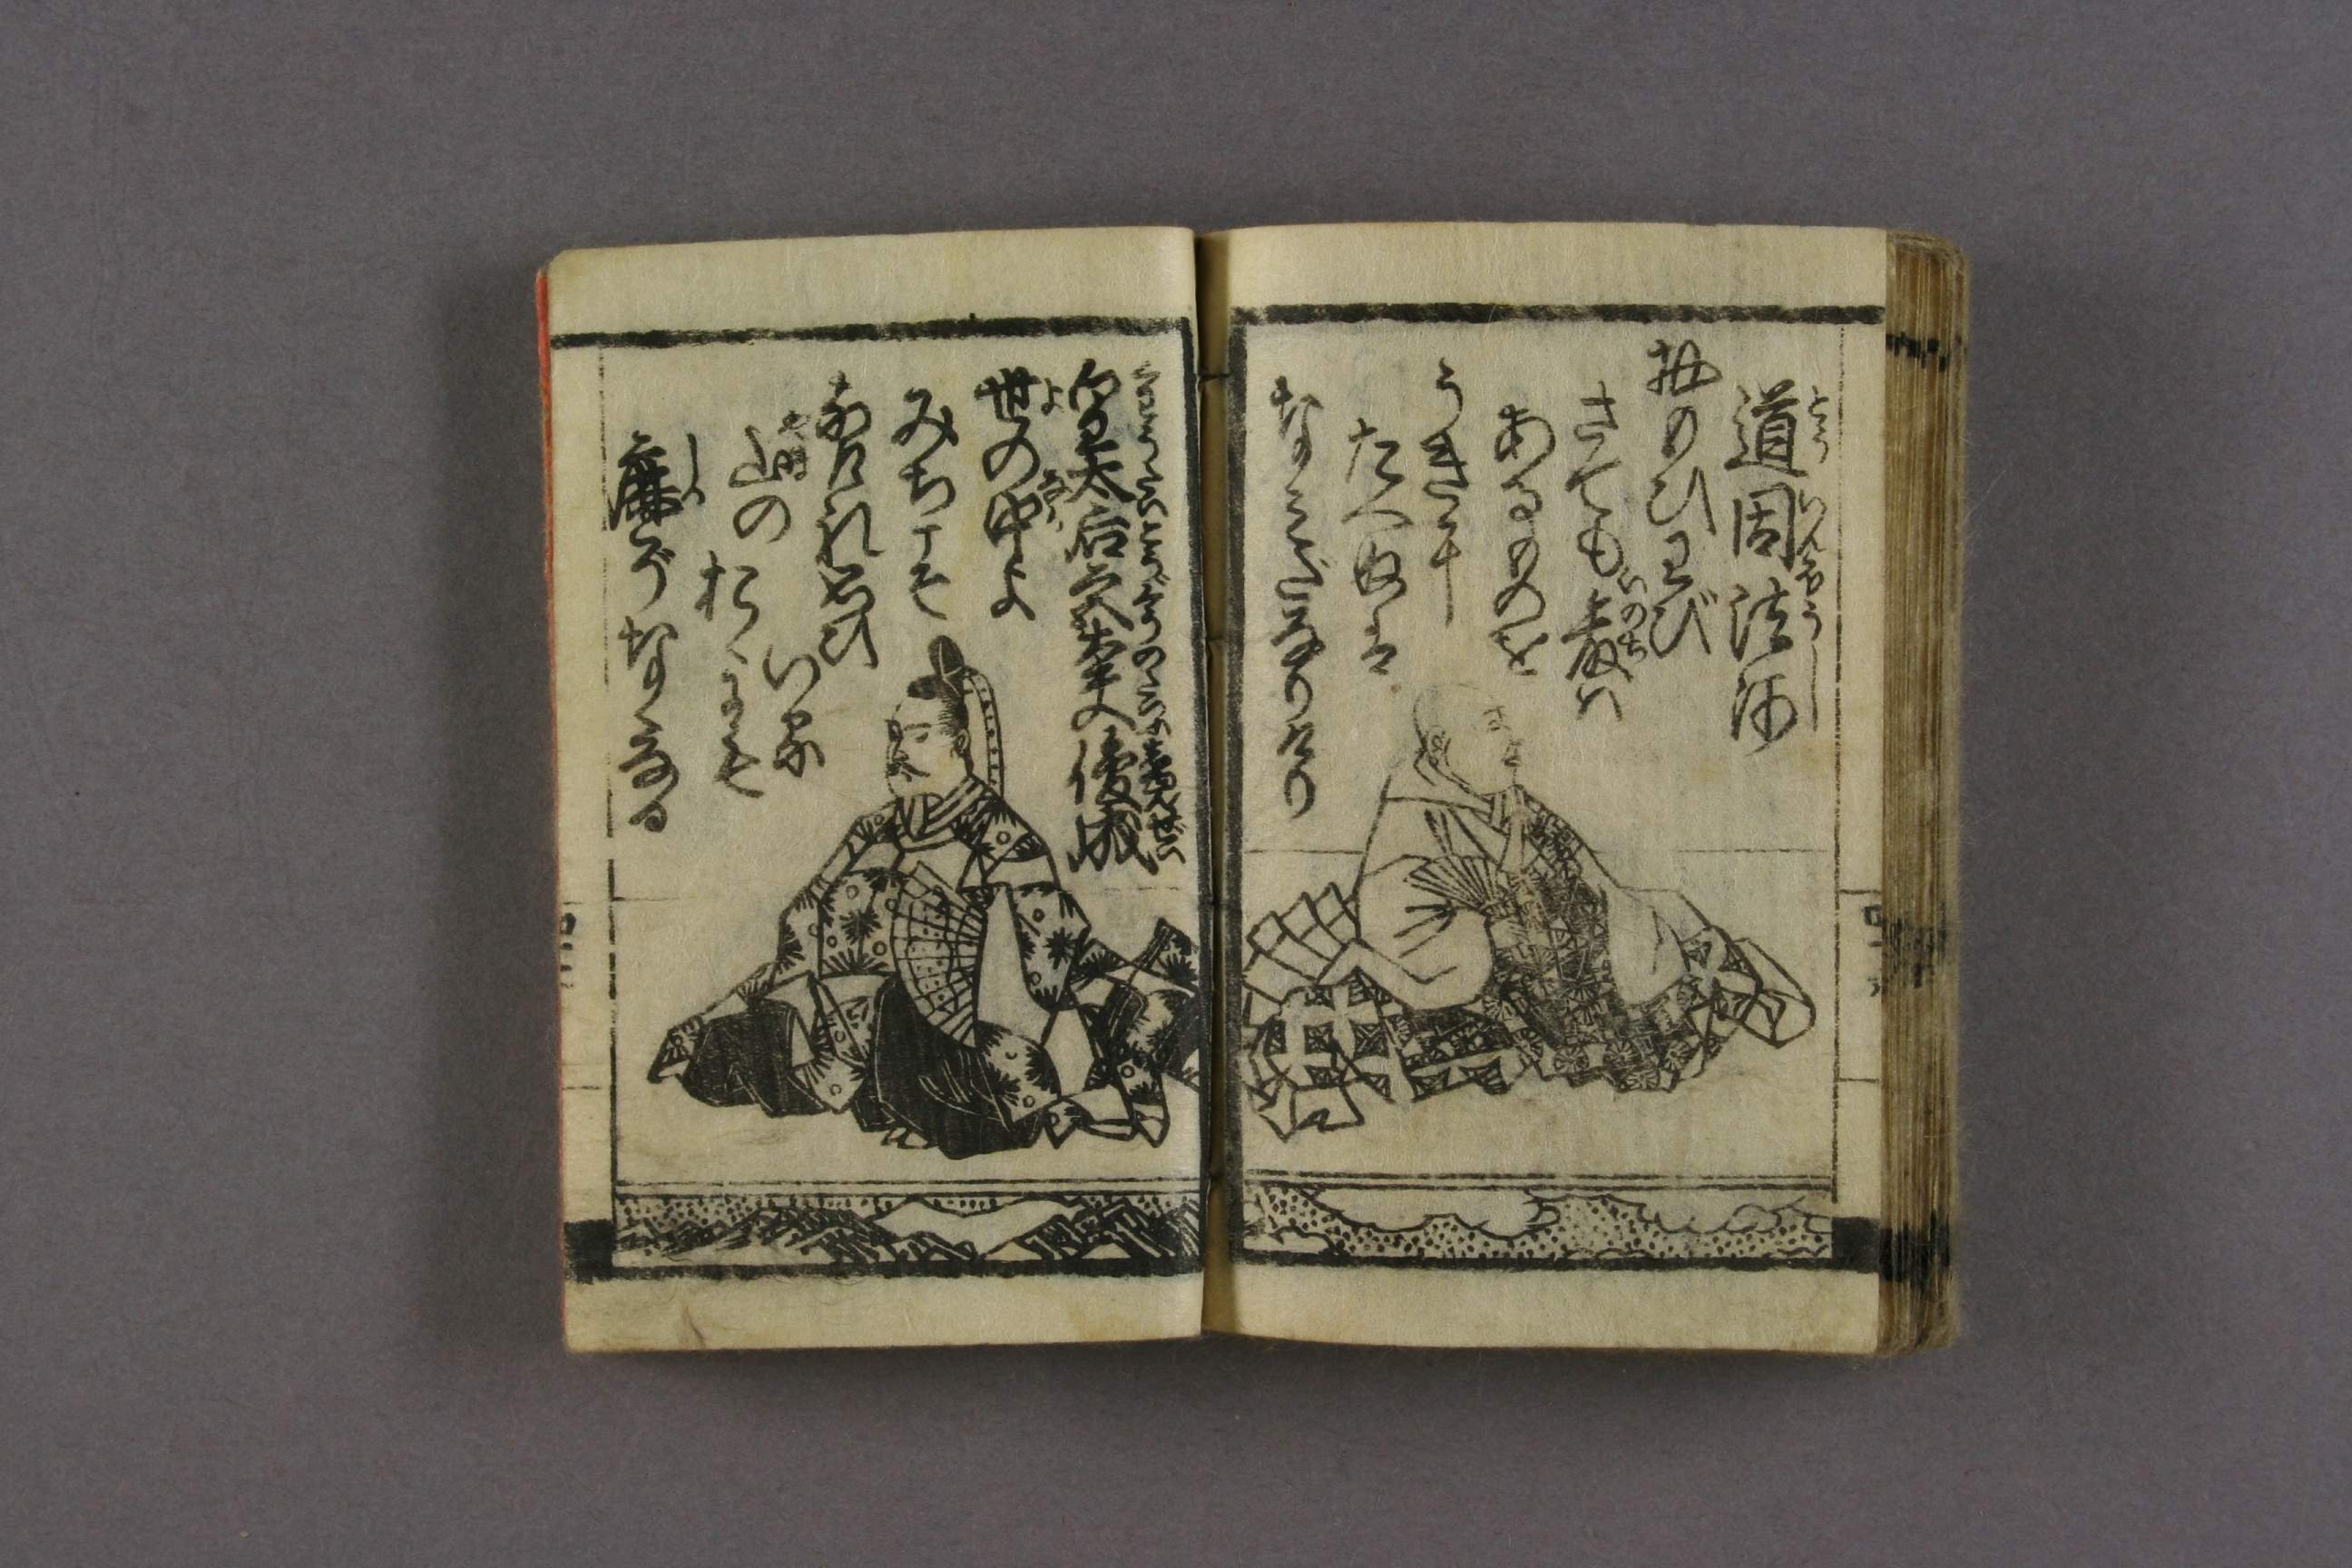 道因法師
おもひわび
さても命は
あるものを
うきに
たへぬは
なみだなりけり
皇太后宮大夫俊成
世の中よ
みちこそ
なけれ思ひ
いる
山の
おくにも
鹿ぞなくなる